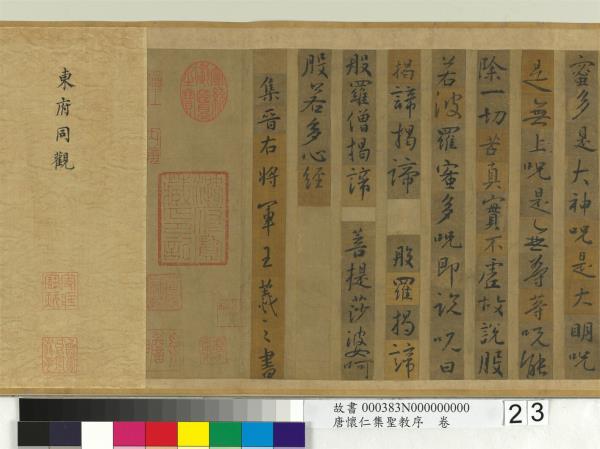 蜜多是大神呪是大明呪
是無上呪是無等等呪能
除一切苦真實不虛故說般
若波羅蜜多呪即說呪曰
揭諦揭諦 般羅揭諦
般羅僧揭諦 菩提莎婆呵
般若多心經
集晉右將軍王羲之書
東府同觀
故書 000383N000000000
唐懷仁集聖教序 卷
23